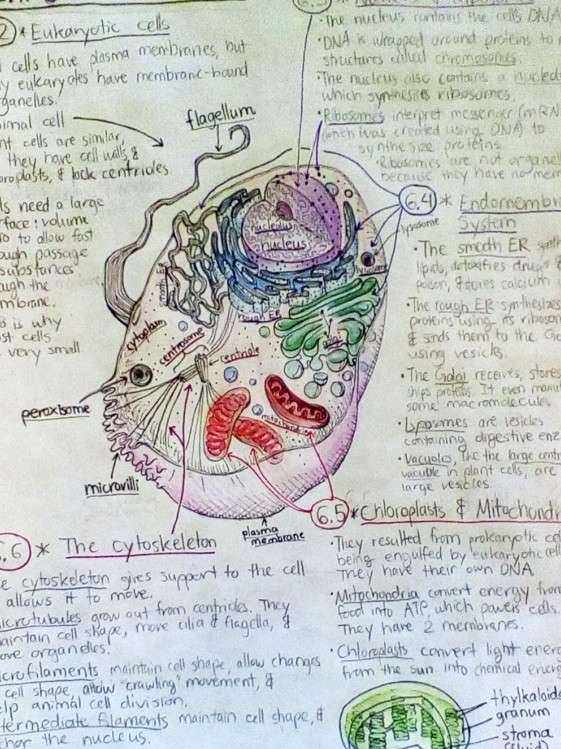 2) * Eukaryotic cells
cells have plasma membranes, but
eukaryotes have membrane-bound
ganelles.
imal cell
nt cells are similar,
they have cell walls &
oroplasts, & lack centrioles
ls need a large
rface: volume
io to allow fast
ough passage
substances
ugh the
mbrane.
is why
st cells
very small
flagellum
The nucleus contains the cells DNA
DNA is wrapped around proteins to
structures called chromosomes.
The nucleus also contains a
which synthesizes ribosomes.
Ribosomes interpret messenger (mRN
(which was created using DNA) to
synthesize proteins.
Ribosomes are not organel
because they have no mem
6.4 * Endomembr
System
lysosome
The smooth ER synth
lipids, detoxifies drugs &
poison, & stores calcium
The rough ER synthesizes
proteins using its riboso
& sends them to the Go
using vesicles.
The Golgi receives, stores
ships proteins. It even manu
some macromolecules
Lysosomes are vesicles
containing digestive enz
Vacuoles, like the large centr
vacuole in plant cells, are
large vesicles.
nucleolus
nucleus
smooth ER
rough ER
cytoplasm
centrosome
centriole
mitochondria
peroxisome
microvilli
plasma
membrane
6.5 * Chloroplasts & Mitochondri
They resulted from prokaryotic
being engulfed by eukaryotic cell
They have their own DNA
Mitochondria convert energy from
food into ATP, which powers cells.
They have 2 membranes.
Chloroplasts convert light energ
from the sun into chemical energ
thylkaloid
granum
stroma
.6 * The cytoskeleton
e cytoskeleton gives support to the cell
allows it to move.
icrotubules grow out from centrioles. They
aintain cell shape, move cilia & flagella, &
ove organelles.
icrofilaments maintain cell shape, allow changes
cell shape, allow "crawling" movement, &
elp animal cell division.
termediate filaments maintain cell shape, &
chor the nucleus.